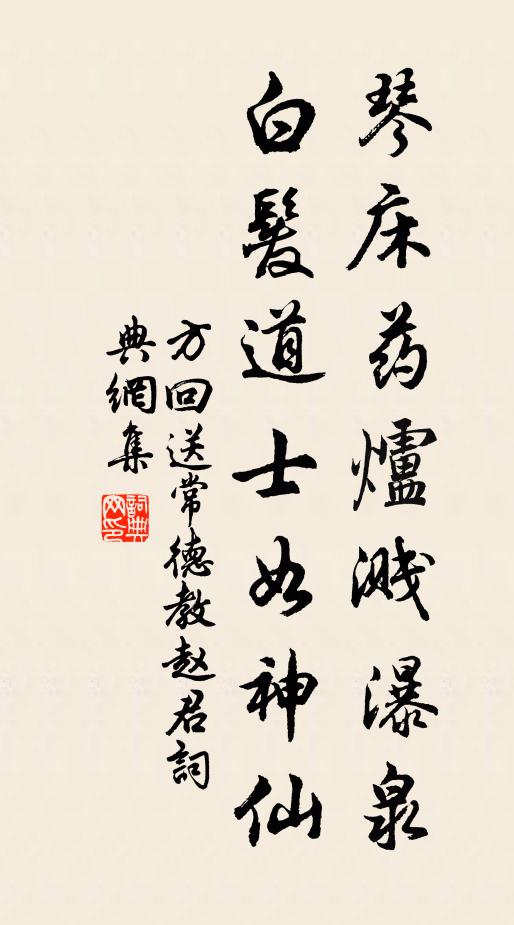 琴床药爐溅瀑泉
白髮道士如神仙
方回送常德教赵君詞
典網集
詞典
网印